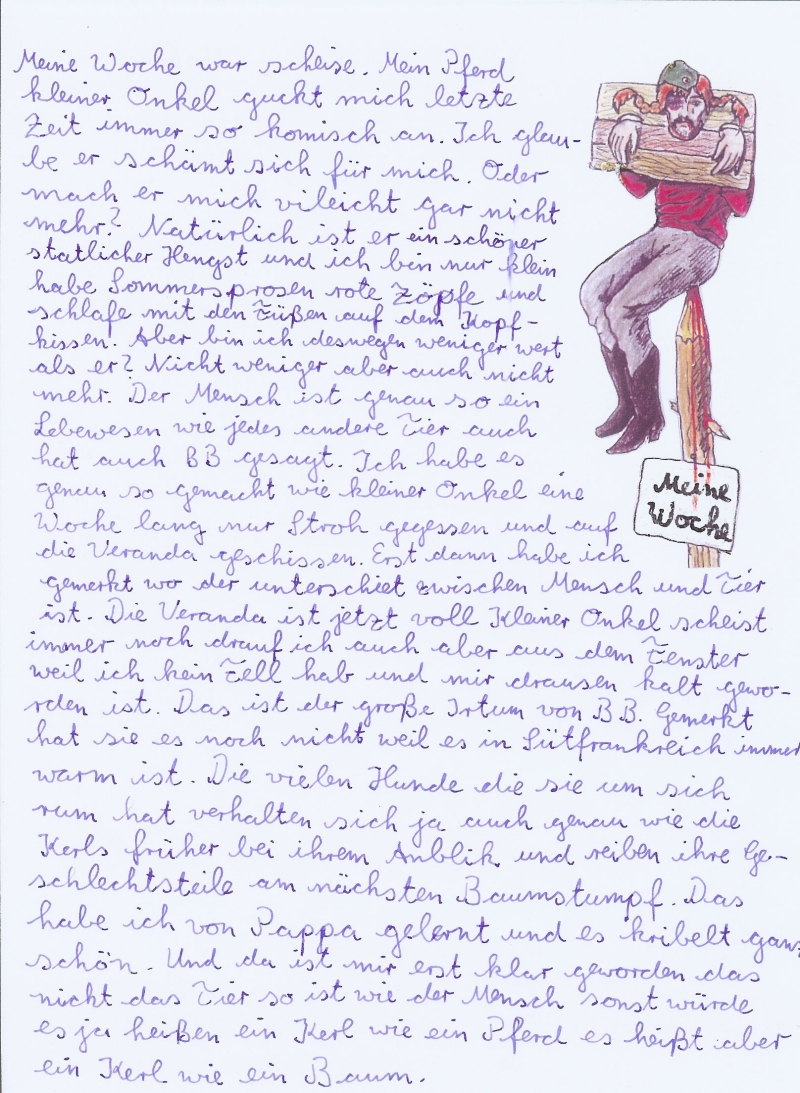 Meine Woche war scheise. Mein Pferd
kleiner Onkel guckt mich letzte
Zeit immer so komisch an. Ich glau-
be er schämt sich für mich. Oder
mach er mich vileicht gar nicht
mehr? Natürlich ist er ein schöner
statlicher Hengst und ich bin nur klein
habe Sommersprosen rote Zöpfe und
schlafe mit den Füßen auf dem Kopf-
kissen. Aber bin ich deswegen weniger wert
als er? Nicht weniger aber auch nicht
mehr. Der Mensch ist genau so ein
Lebewesen wie jedes andere Tier auch
hat auch BB gesagt. Ich habe es
genau so gemacht wie kleiner Onkel eine
Woche lang nur Stroh gegessen und auf
die Veranda geschissen. Erst dann habe ich
gemerkt wo der unterschiet zwischen Mensch und Tier
ist. Die Veranda ist jetzt voll Kleiner Onkel scheist
immer noch drauf ich auch aber aus dem Fenster
weil ich kein Fell hab und mir drausen kalt gewo-
rden ist. Das ist der große Irtum von BB. Gemerkt
hat sie es noch nicht weil es in Sütfrankreich immer
warm ist. Die vielen Hunde die sie um sich
rum hat verhalten sich ja auch genau wie die
Kerls früher bei ihrem Anblik und reiben ihre Ge-
schlechtsteile am nächsten Baumstumpf. Das
habe ich von Pappa gelernt und es kribelt ganz
schön. Und da ist mir erst klar geworden das
nicht das Tier so ist wie der Mensch sonst würde
es ja heißen ein Kerl wie ein Pferd es heißt aber
ein Kerl wie ein Baum.
Meine
Woche